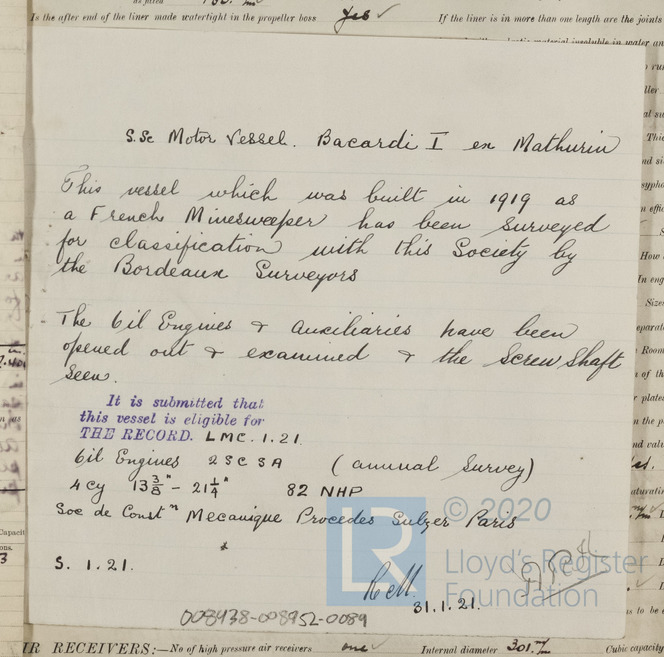 Is the after end of the liner made watertight in the propeller boss yes
If the liner is in more than one length are the joints
S.Sc Motor Vessel. Bacardi I ex Mathurin
This vessel which was built in 1919 as
a French Minesweeper has been surveyed
for classification with this Society by
the Bordeaux Surveyors
The Oil Engines & auxiliaries have been
opened out & examined & the Screw Shaft
seen.
It is submitted that
this vessel is eligible for
THE RECORD. LMC. 1.21.
Oil Engines 2SCSA (annual Survey)
4 cy 13 3/8" - 21 1/4" 82 NHP
Soc de Constⁿ Mecanique Procedes Sulzer Paris
S. 1.21.
31.1.21.
008938-008952-0089
LR
© 2020
Lloyd's Register
Foundation
IR RECEIVERS:—No of high pressure air receivers one
Internal diameter 301 m/m
Cubic capacity